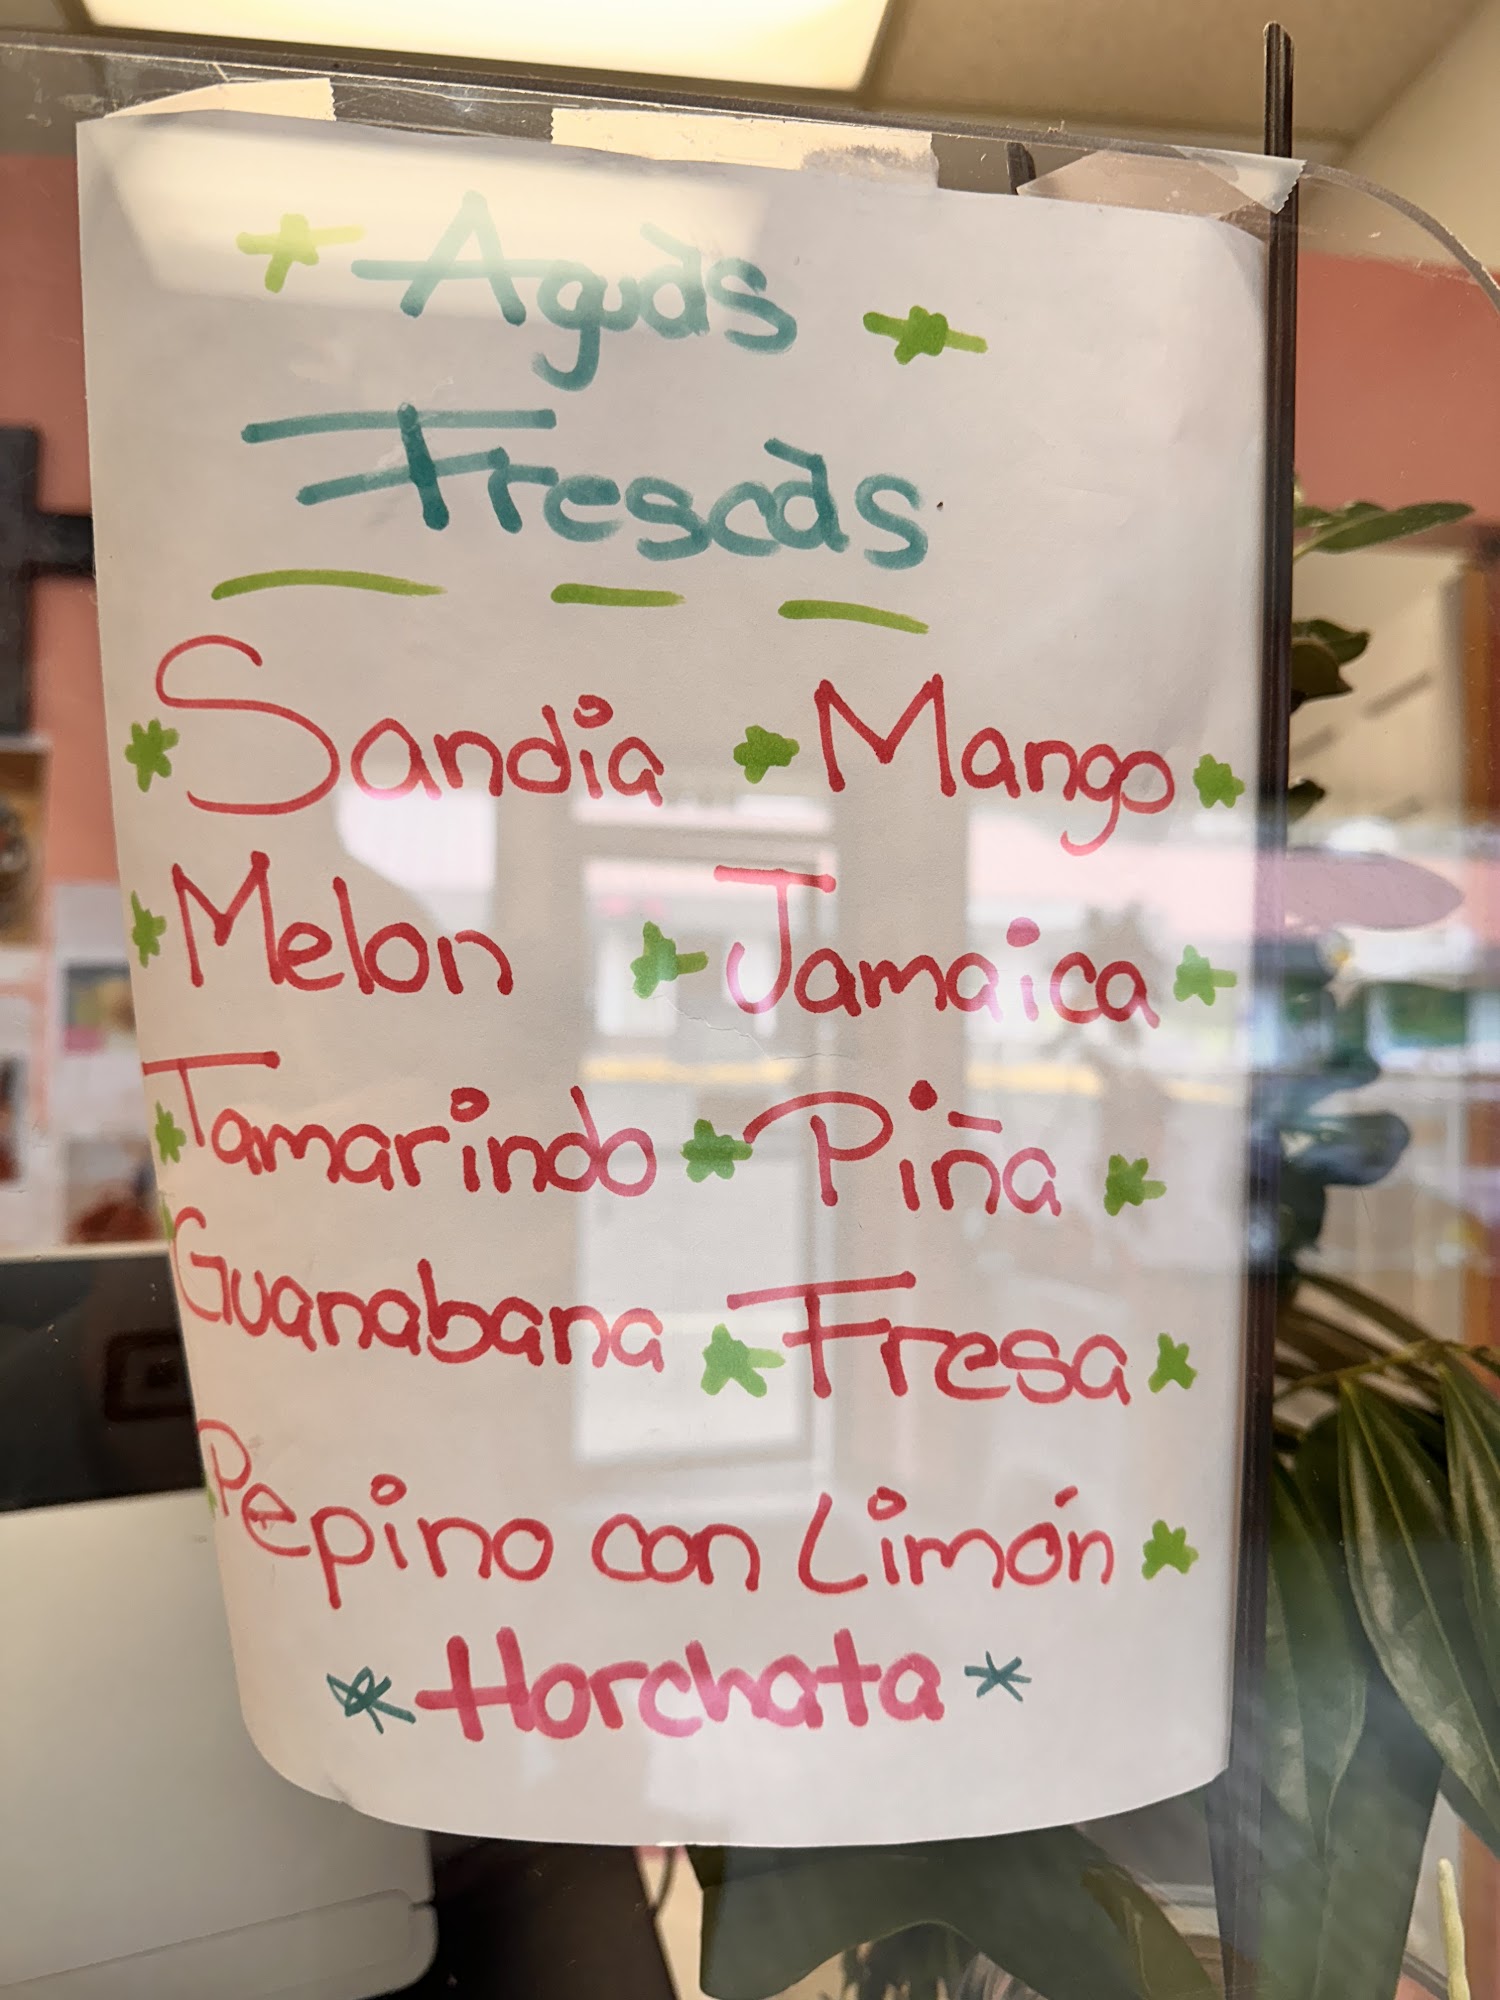 Aguas
Frescas
Sandia Mango
Melon Jamaica
Tamarindo Piña
Guanabana Fresa
Pepino con Limón
Horchata